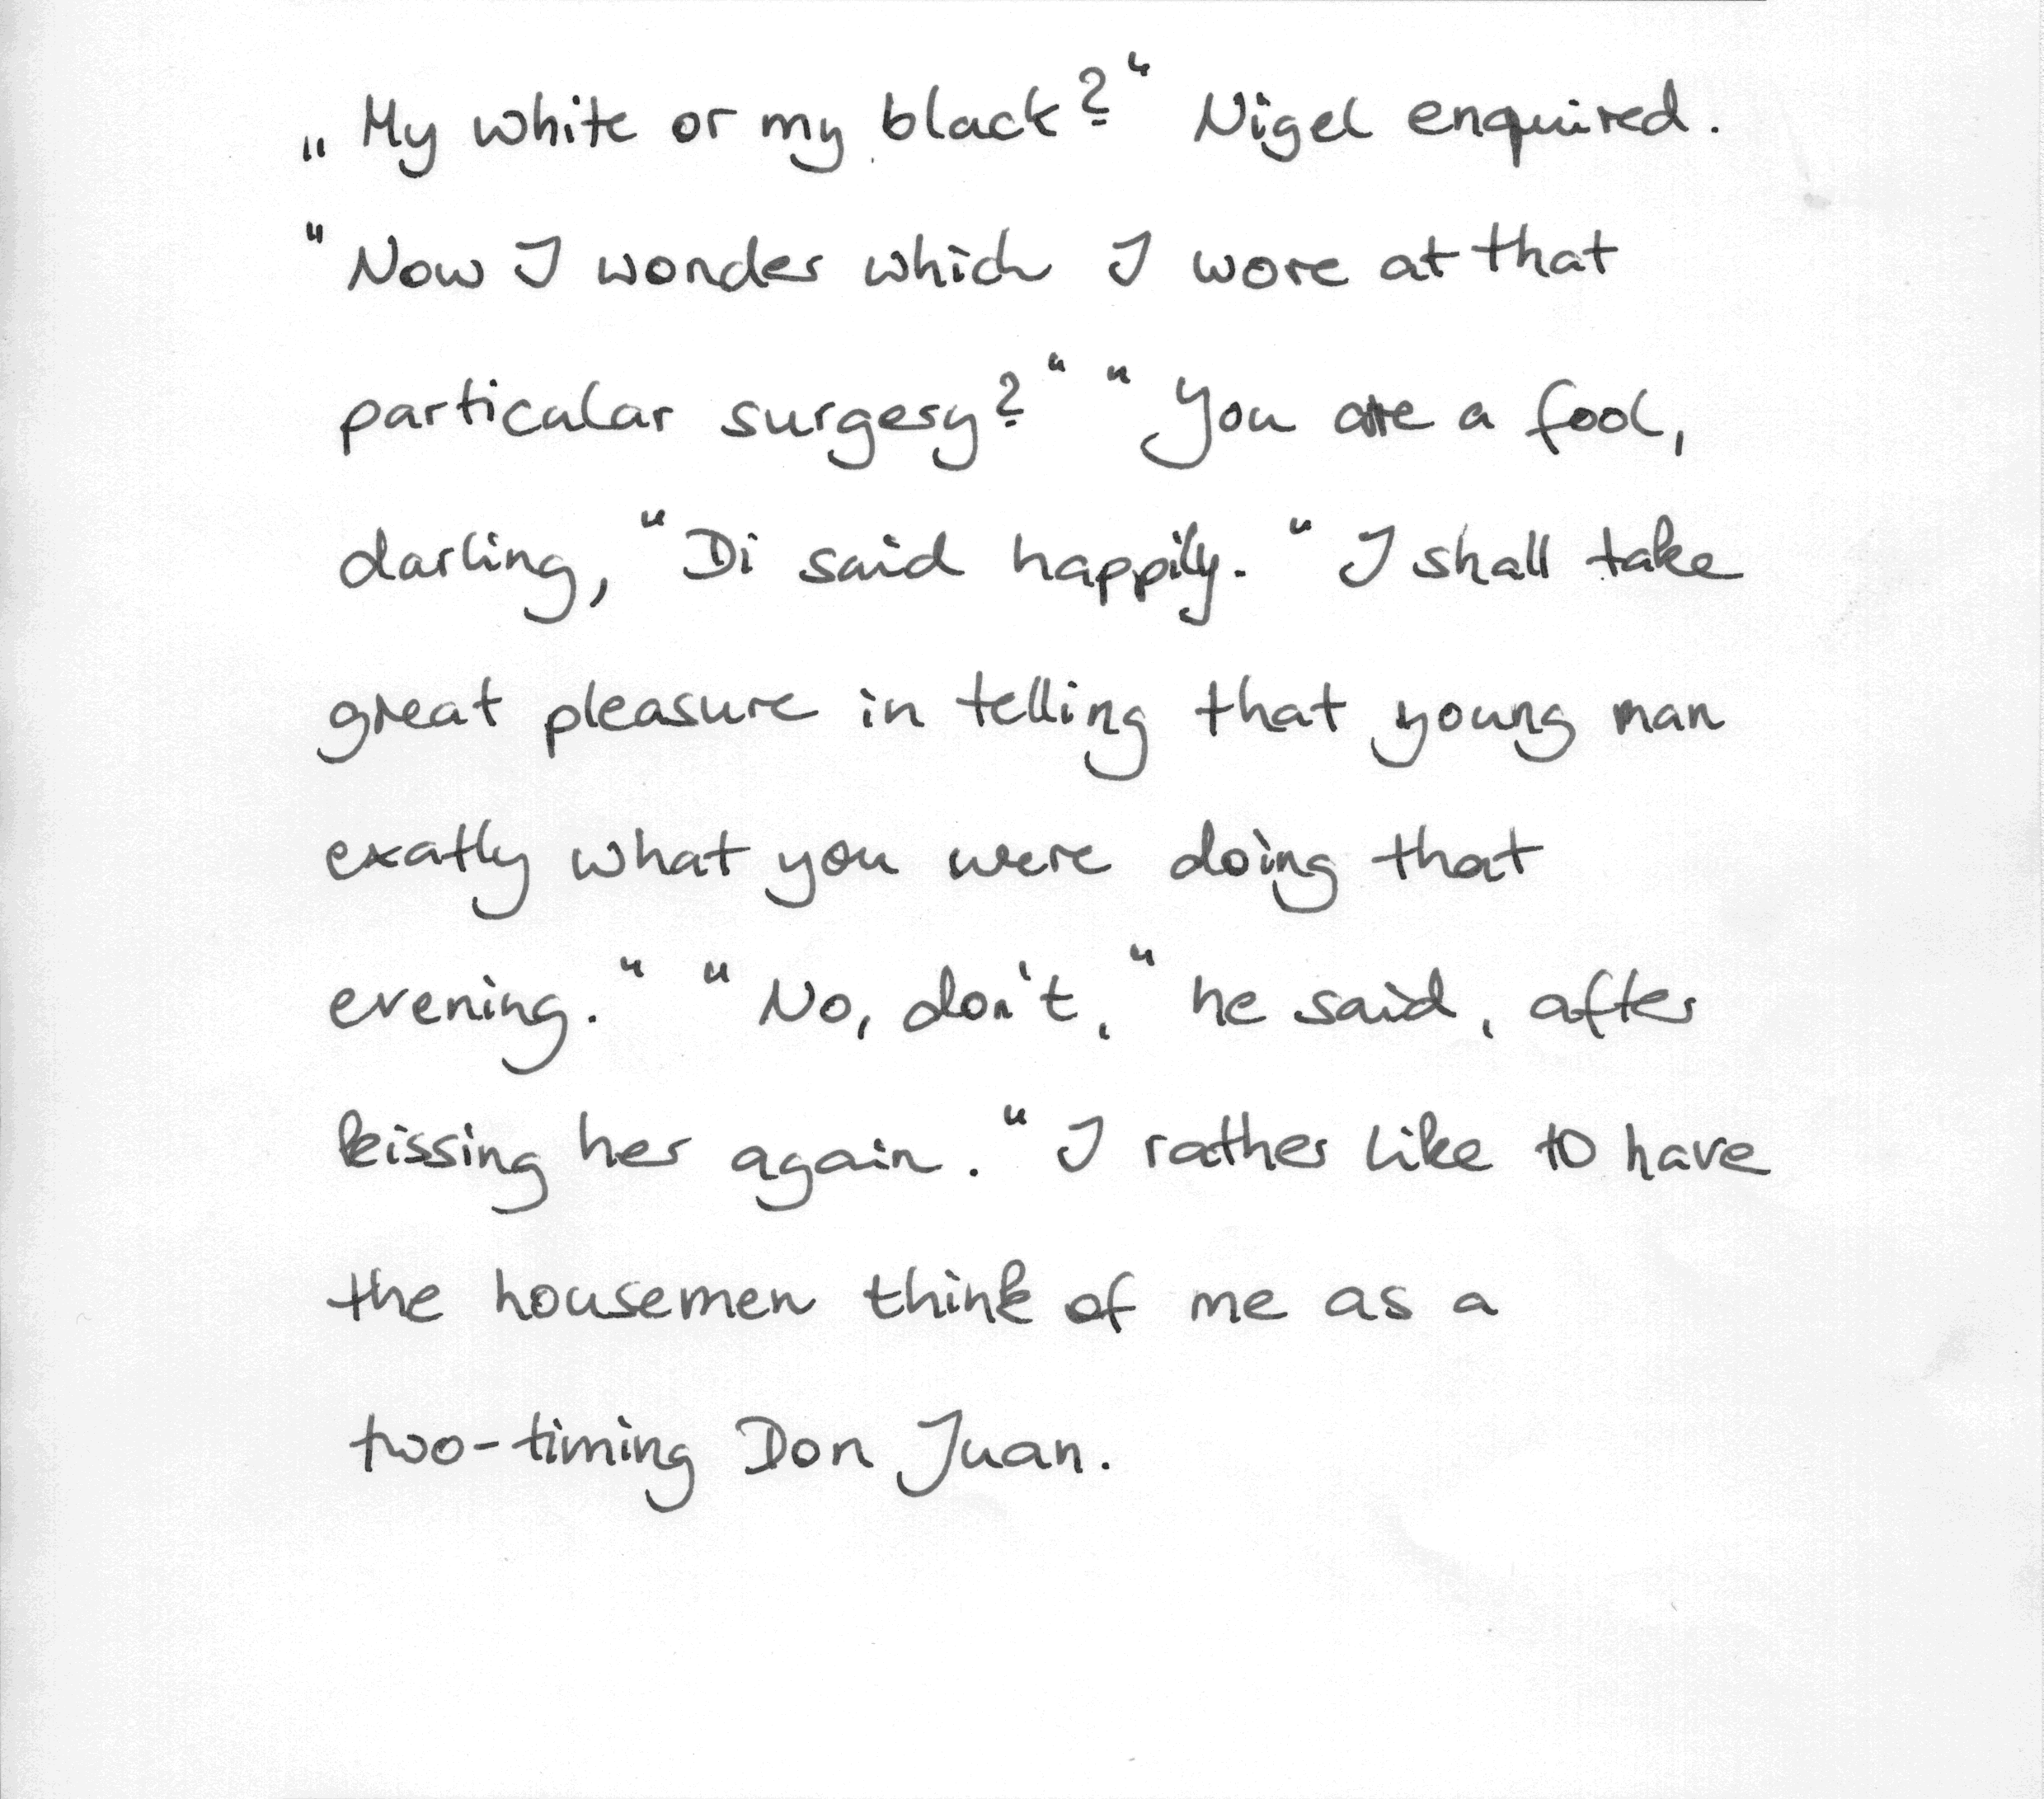 „My white or my black?“ Nigel enquired.
"Now I wonder which I wore at that
particular surgery?" "You are a fool,
darling, "Di said happily. "I shall take
great pleasure in telling that young man
exatly what you were doing that
evening." "No, don't," he said, after
kissing her again. "I rather like to have
the housemen think of me as a
two-timing Don Juan.